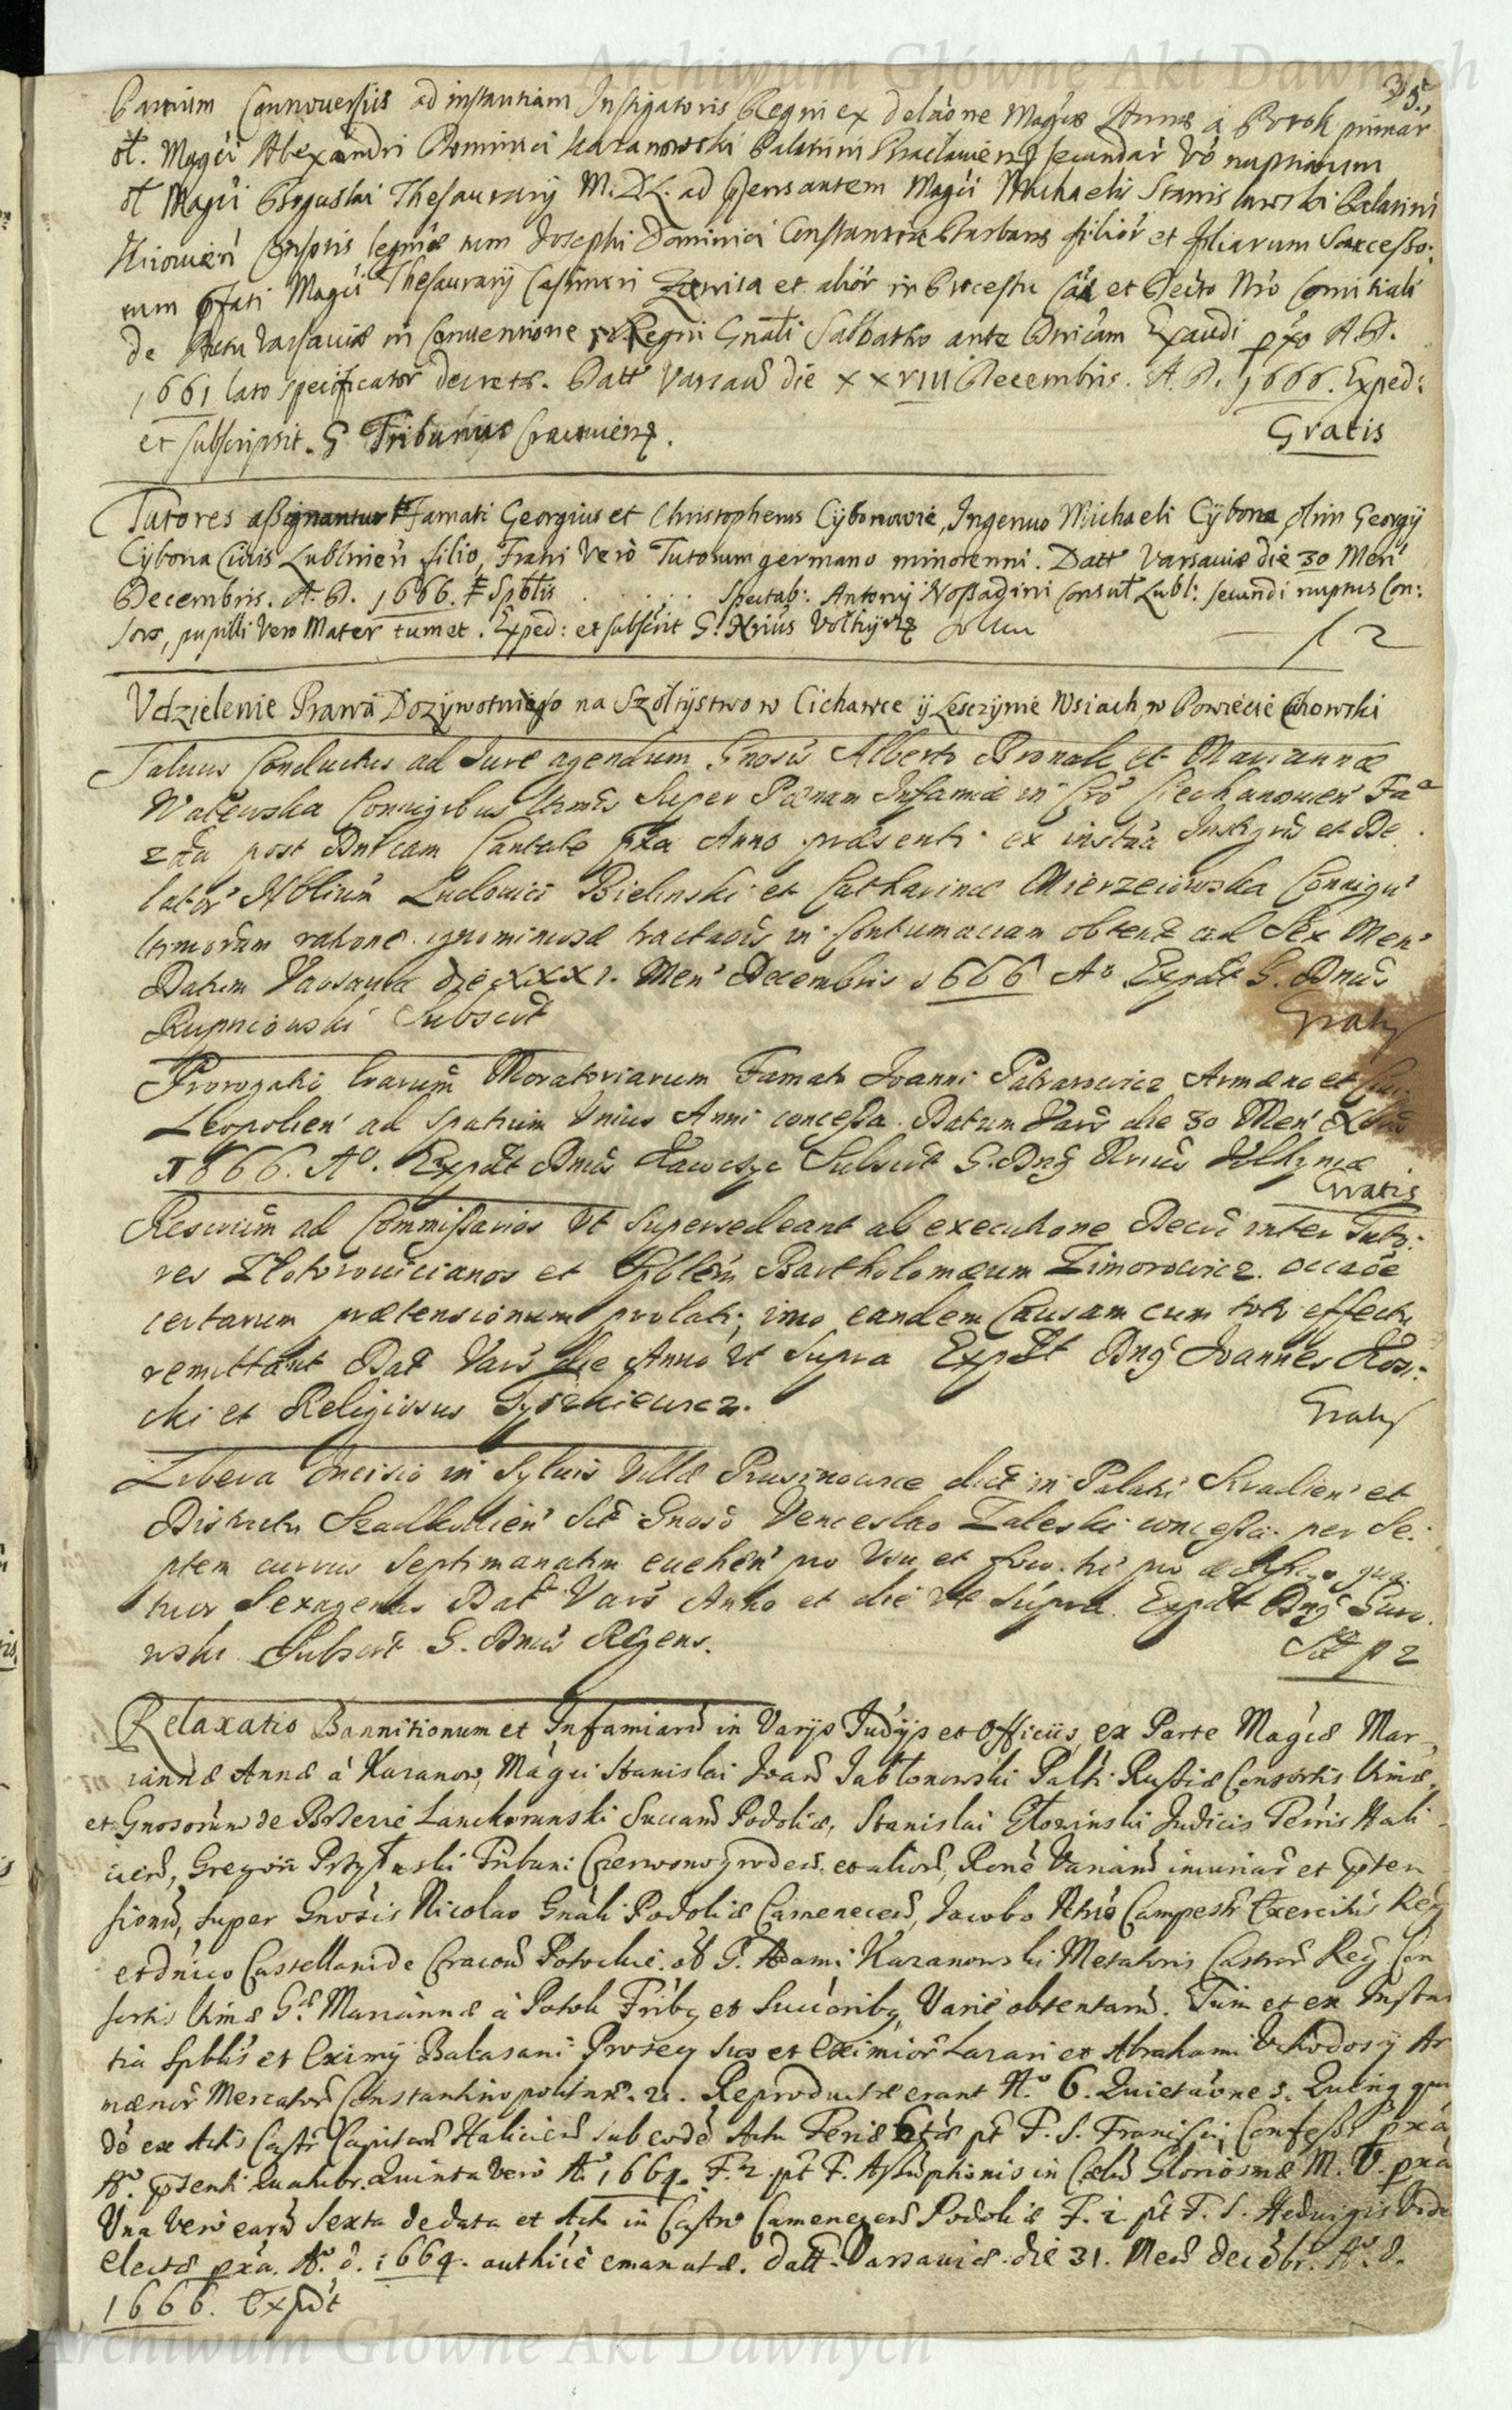 Archiwum Główne Akt Dawnych
35.
Partium Controversiis ad instantiam Instigatoris Regni ex delaõne Magcae Annae à Prrok primar
ol. Magci Alexandri Dominici Kazanowski Palatini Bracławien secundar vo nuptiarum
ol Magci Boguslai Thesaurarij M.D.L. ad praens autem Magci Michaelis Stanisławski Palatini
Kiiovien Consortis legmae tum Josephi Dominici Constantiae Barbarae filior et filiarum Successo:
rum pfati Magci Thesaurarij Casimiri Zenisa et alior in Processu Cae et Decto Nro Comitiali
de Actu Varsaviae in Conventione Regni Gnali Sabbatho ante Dnicam Exaudi pxo A.D.
1661 lato specificator decreto. Datt Varsav die XXVIII Decembris. A.D. 1666. Exped:
et subscripsit. G Tribunus Cracovien.
Gratis
Tutores assignantur Famati Georgius et Christopherus Cybonowie, Ingenuo Michaeli Cybona olim Georgij
Cybona Civis Lublinen filio, Fratri vero Tutorum germano minorenni. Datt Varsaviae die 30 Men
Decembris. A.D. 1666. Et Spblis . . . . . . Spectab: Antonij Nossadyni Consul Lubl: secundi nuptus Con:
sors, pupilli vero Mater tum et. Exped: et subscrit G. Nrius Volhyn
f 2
Udzielenie Prawa Dozywotniego na Szołtystwo w Cichawce ÿ Lesczynie Wsiach w Powiecie Chowski
Salvus Conductus ad Jure agendum Gnosis Alberto Bronak et Mariannae
Walewska Coniugibus Urmis Super Paenam Infamiae in Cro Ciechanovien Fa
2da post Dnicam Cantate pxa Anno praesenti ex insta Instigris et De
lator Nblium Ludovici Bielinski et Catharinae Mierzeiowska Coniugu
ltimorum ratione ignominiosae tractaõis in Contumaciam obtent ad Sex Men
Datum Varsavia die XXXI. Men Decembris 1666 Ao Expdt G. Dnus
Rupniowski Subscrt
Gratis
Prorogatio lrarum Moratoriarum Famato Joanni Patrasowicz Armaeno et Civi
Leopolien ad spatium Unius Anni concessa. Datum Vars die 30 Men Xbris
1666. Ao. Expdt Dnus Subscrt G. Dng Nrius Volhyniae
Gratis
Rescrium ad Commissarios Ut supersedeant ab executione Decri inter Tuto:
res Złotorowicianos et Spblem Bartholomaeum Zimorowicz. occaõe
certarum praetensionum prolati; imo eandem Causam cum toto effectu
remittant Dat Vars die Anno Ut Supra Expdt Dng Joannes
cki et Religiosus
Gratis
Libera Incisio in Sylvis Villae Prusinowice dict in Palati Siradien et
Districtu Szadkovien Sit Gnoso Venceslao Zaleski concessa. per Se:
ptem currus Septimanatim evehen pro Usu et foco. pro aedificio qua
tuor Sexagenas Dat Vars Anno et die Ut supra. Expdt Dng
wski Subscrt G. Dnus Regens.
p 2
Relaxatio Bannitionum et Infamiar in Varijs Judijs et Officiis, ex Parte Magcae Mar
iannae Annae à Kazanow, Magci Stanislai Joan Jabłonowski Palti Russiae Consortis Urmae,
et Gnosorum de Brzezie Lanckorunski Succam Podoliae, Stanislai Głozinski Judicis Terris Hali
cien, Gregorii Przyłuski Tribuni Czerwonogroden. et alior, Rone Variar iniuriar et pten
sionu, super Gnosis Nicolao Gnali Podoliae Camenecen, Jacobo Nrio Campestr Exercitus Reg
et dnico Castellanide Cracov Potockie. ol G. Adami Kazanowski Metatoris Castror Reg Con
sortis Urmae Gae Mariannae à Potok Fribg et Succoribg, Varie obtentaru. Tum et ex Instan
tia Spblis et Eximij Babasani Prosen suo et Eximior Lazari et Abrahami Uchodosij Ar
maenor Mercator Constantinopolitan. 21. Reproductae erant No 6. Quietaõnes. Quinq qui
de ex Actis Castr Capitan Halicien sub eode Actu Feriae 6tae pt F. S. Francisci Confess pxa
Ao. ptenti Quatuor. Quinta vero Ao 1664. F. 2 pt F. Assumptionis in Caelu Gloriosmae M. V. pxa
Una vero earu Sexta de data et Actu in Castro Camenecen Podoliae F. 2 pt F. S. Hedvigis Vidu
electae pxa. Ao. d. 1664. authice emanatae. Datt. Varsaviae. die 31. Men decebr. Ao. d.
1666. Expdt
Archiwum Główne Akt Dawnych